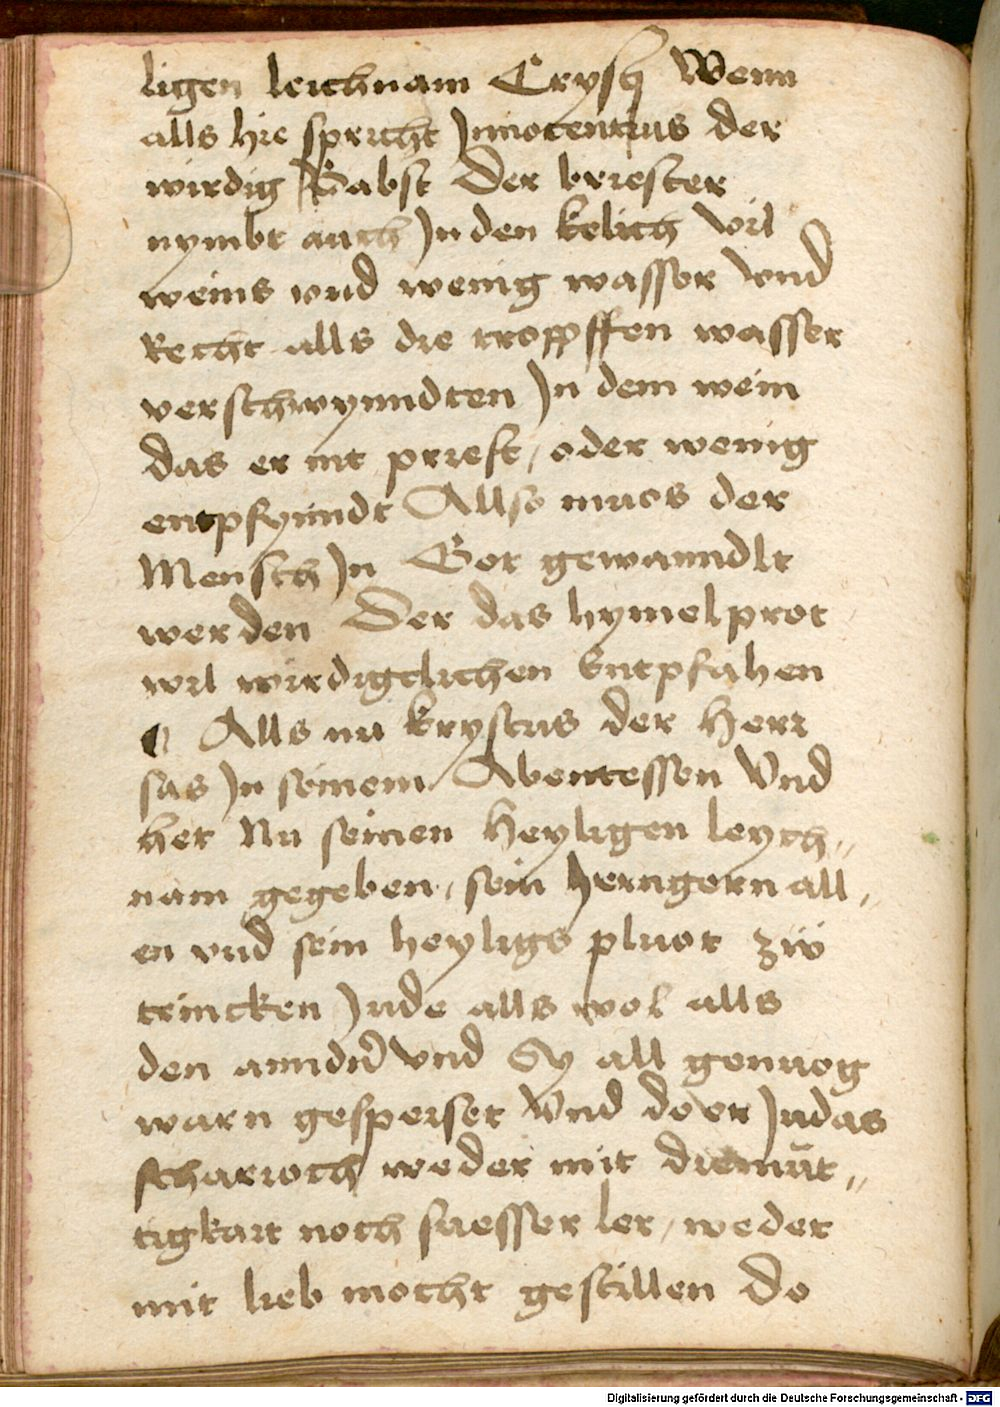 ligen leichnam Crysti Wenn
alls hie spricht Innocentius der
wirdig Babst Der briester
nymbt auch In den kelich vil
weins vnd wenig wasser Vnd
Recht alls die tropffen wasser
verschwynndten In dem wein
das er nit prieft / oder wenig
entpfyndt Allso muos der
Mensch In Got gewanndlt
werden Der das hymelprot
wil wirdigclichen Entpfahen
¶ Alls nu krystus der Herr
sas In seinem Abentessen Vnd
het Nu seinen Heyligen leych„
nam gegeben, sein Iungern all„
en vnd sein heyligs pluot zw
trincken Jude alls wol alls
den anndn̄ vnd Sy all genuog
warn gespeiset Vnd do er Judas
scharioth weder mit diemūt„
tigkait noch suesser ler / weder
mit lieb mocht gestillen Do
Digitalisierung gefördert durch die Deutsche Forschungsgemeinschaft - DFG